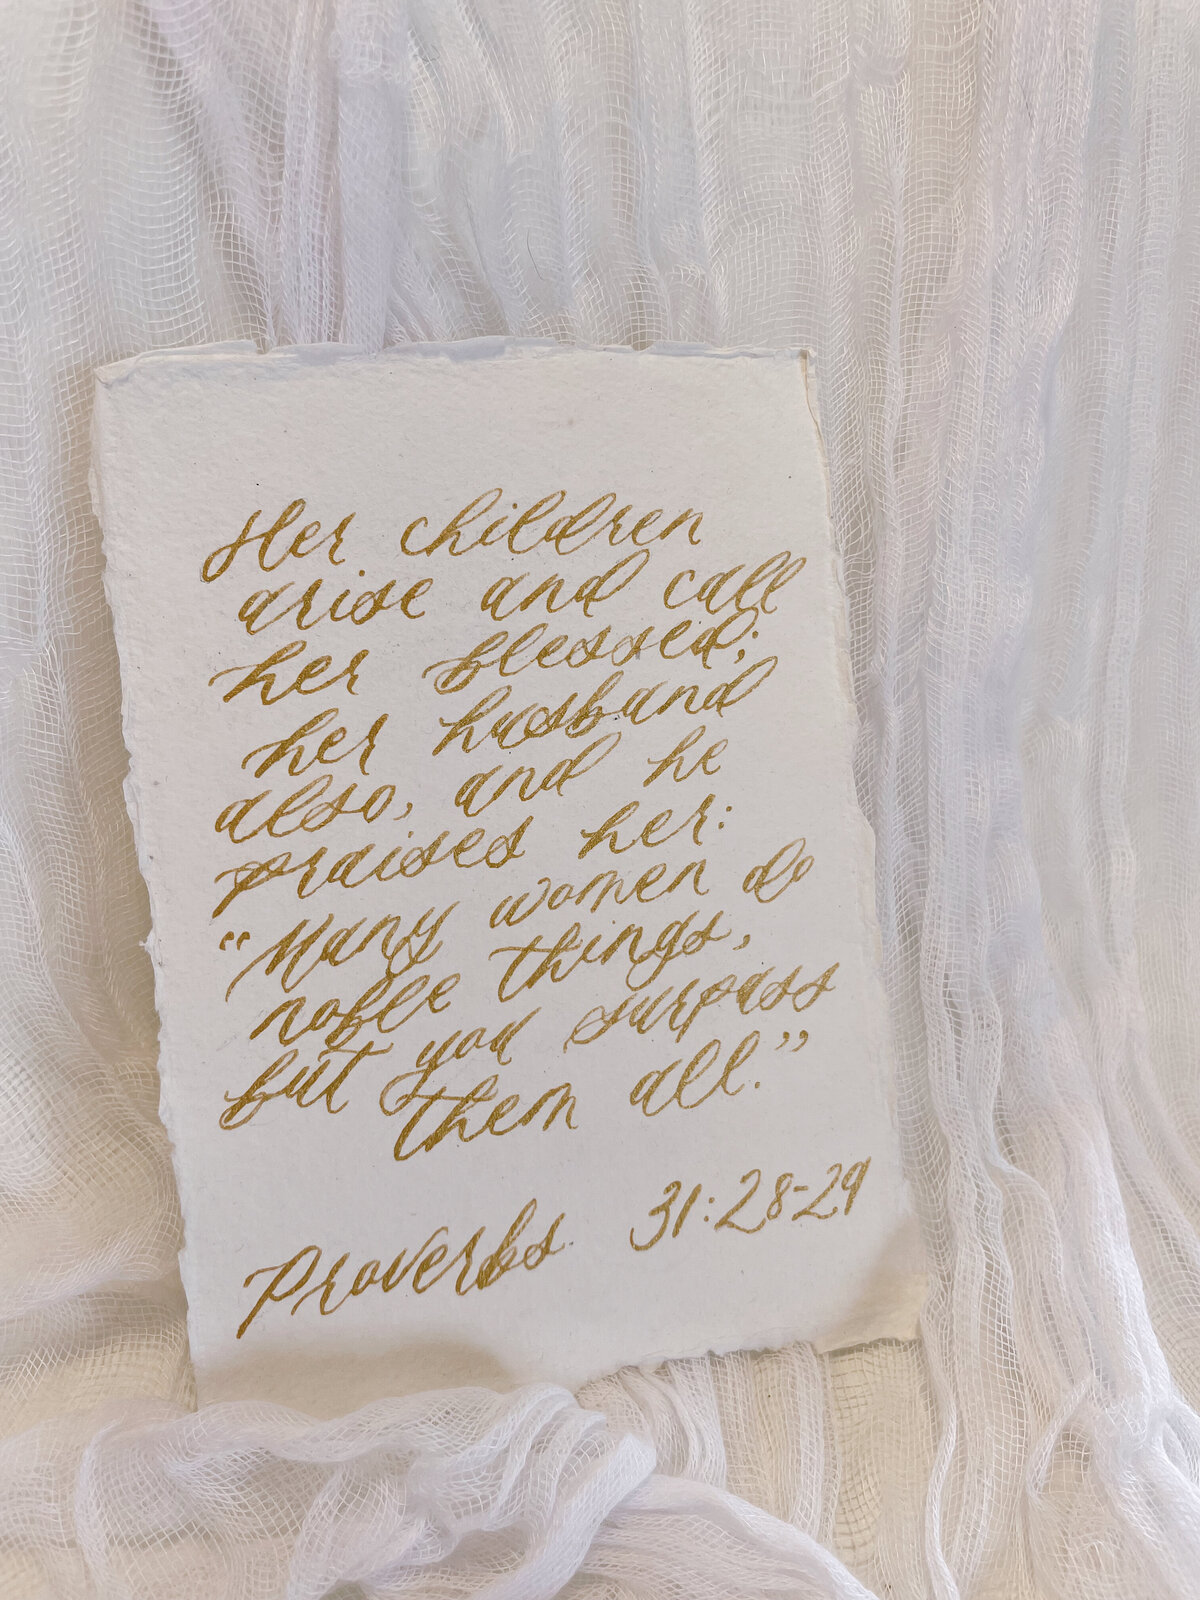 Her children
arise and call
her blessed;
her husband
also, and he
praises her:
“Many women do
noble things,
but you surpass
them all.”
Proverbs 31:28-29